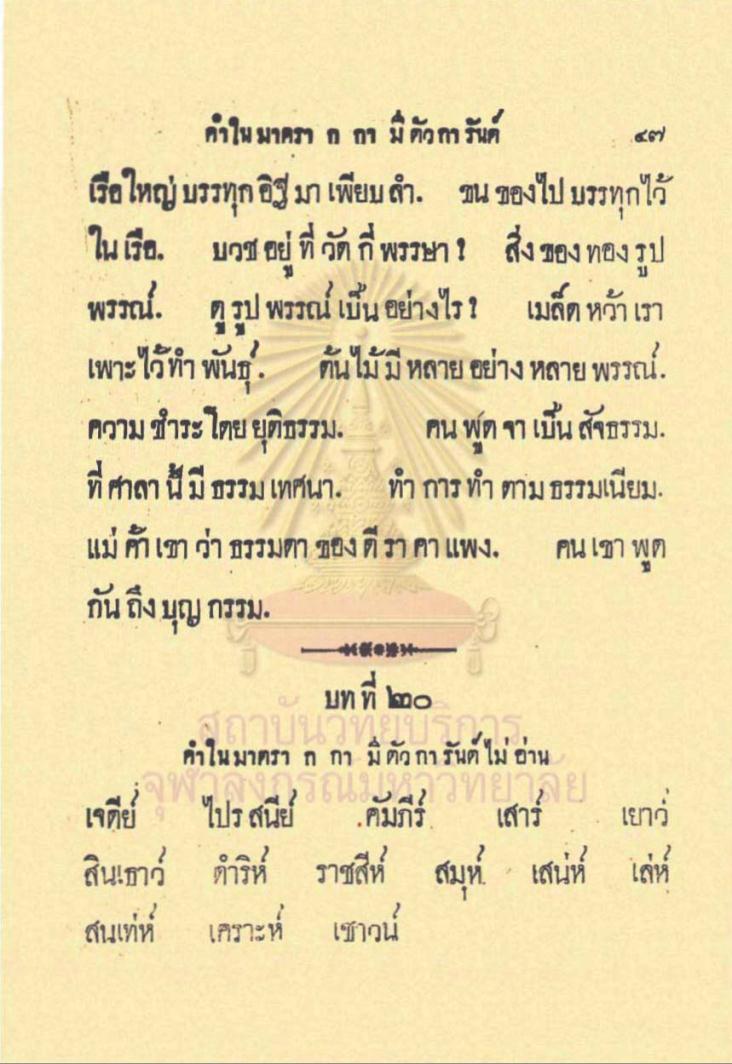 คำในมาตรา ก กา มี ตัวการันต์ ๔๗
เรือใหญ่ บรรทุก อิฐี มา เพียบ ลำ. ขน ของไป บรรทุกไว้
ใน เรือ. บวช อยู่ ที่ วัด กี่ พรรษา? สิ่ง ของ ทอง รูป
พรรณ์. ดู รูป พรรณ์ เป็น อย่างไร? เมล็ด หว้า เรา
เพาะ ไว้ทำ พันธุ์. ต้นไม้ มี หลาย อย่าง หลาย พรรณ์.
ความ ชำระ โดย ยุติธรรม. คน พูด จา เป็น สัจธรรม.
ที่ ศาลา นี้ มี ธรรม เทศนา. ทำ การ ทำ ตาม ธรรมเนียม.
แม่ ค้า เขา ว่า ธรรมดา ของ ดี รา คา แพง. คน เขา พูด
กัน ถึง บุญ กรรม.
บทที่ ๒๐
คำในมาตรา ก กา มี ตัวการันต์ ไม่ อ่าน
เจดีย์ ไปรสนีย์ คัมภีร์ เสาร์ เยาว์
สินเธาว์ ดำริห์ ราชสีห์ สมุห์ เสน่ห์ เล่ห์
สนเท่ห์ เคราะห์ เชาวน์
สถาบันวิทยบริการ
จุฬาลงกรณ์มหาวิทยาลัย